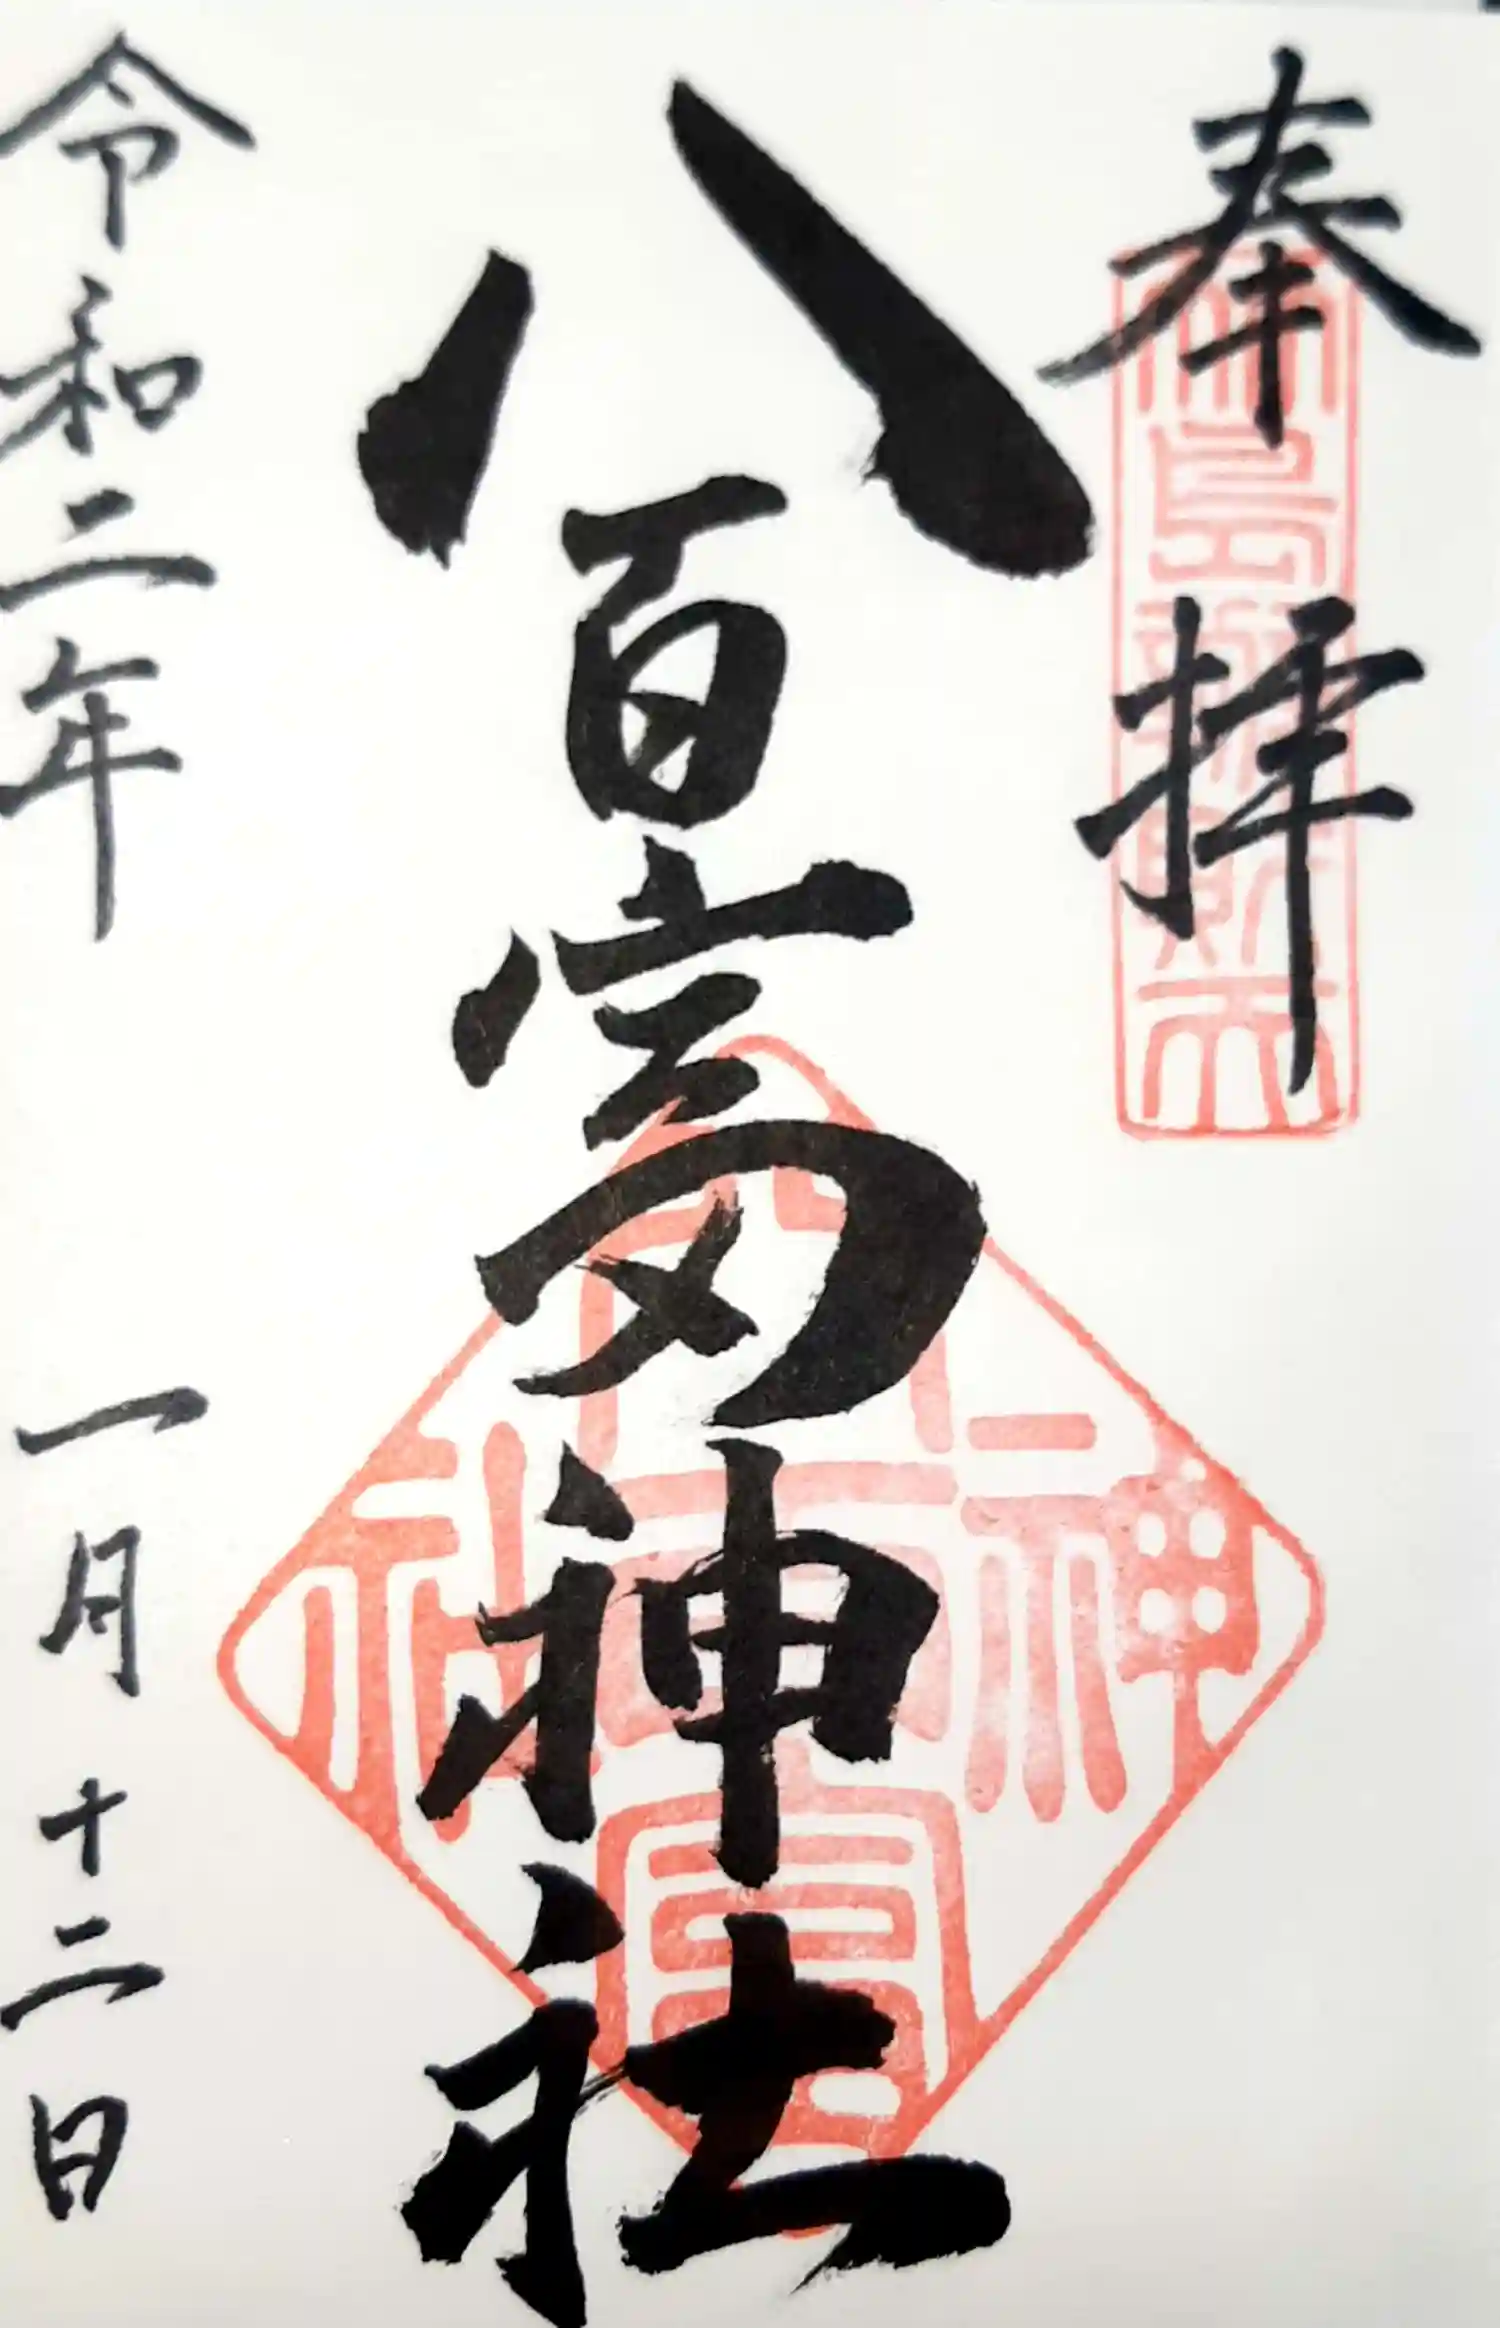 奉拝
八百富神社
令和二年 一月十二日